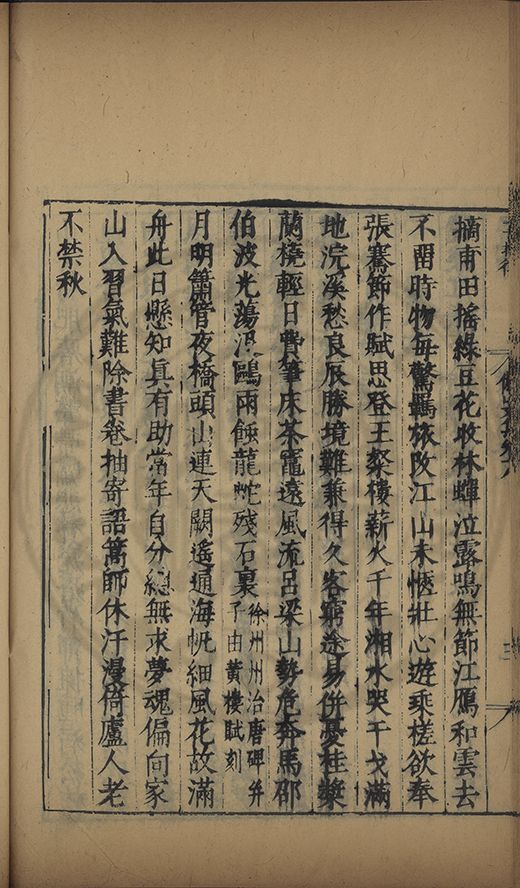 摘甫田搖綠豆花收林蟬泣露鳴無節江鴈和雲去
不畱時物每驚羈旅改江山未愜壯心遊乘槎欲奉
張騫節作賦思登王粲樓薪火千年湘水哭干戈滿
地浣溪愁良辰勝境難兼得久客窮途易併憂桂槳
蘭橈輕日費筆床茶竈遠風流呂梁山勢危奔馬邵
伯波光蕩沒鷗兩蝕龍蛇殘石裏徐州州治唐碑并
子由黃樓賦刻
月明簫管夜橋頭山連天闕遙通海帆細風花故滿
舟此日懸知真有助當年自分總無求夢魂偏向家
山入習氣難除書卷抽寄語蒿師休汗漫倚廬人老
不禁秋